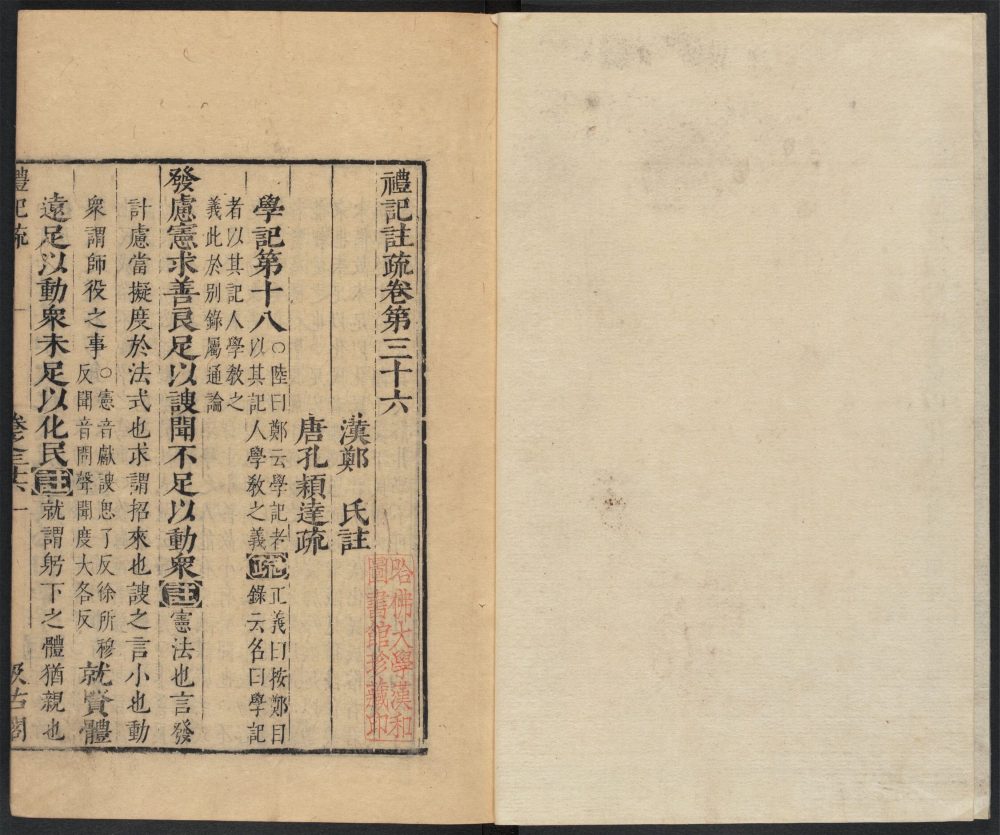 禮記註疏卷第三十六
漢鄭　氏註
唐孔穎達疏
哈佛大學漢和
圖書館珍藏印
學記第十八
○陸曰鄭云學記者
以其記人學教之義
疏
正義曰按鄭目
錄云名曰學記
者以其記人學教之
義此於別錄屬通論
發慮憲求善良足以謏聞不足以動衆註憲法也言發
計慮當擬度於法式也求謂招來也謏之言小也動
衆謂師役之事
○憲音獻謏思了反徐所穆
反聞音問聲聞度大各反
就賢體
遠足以動衆未足以化民註就謂躬下之體猶親也
禮記疏
卷之三十六
一
汲古閣